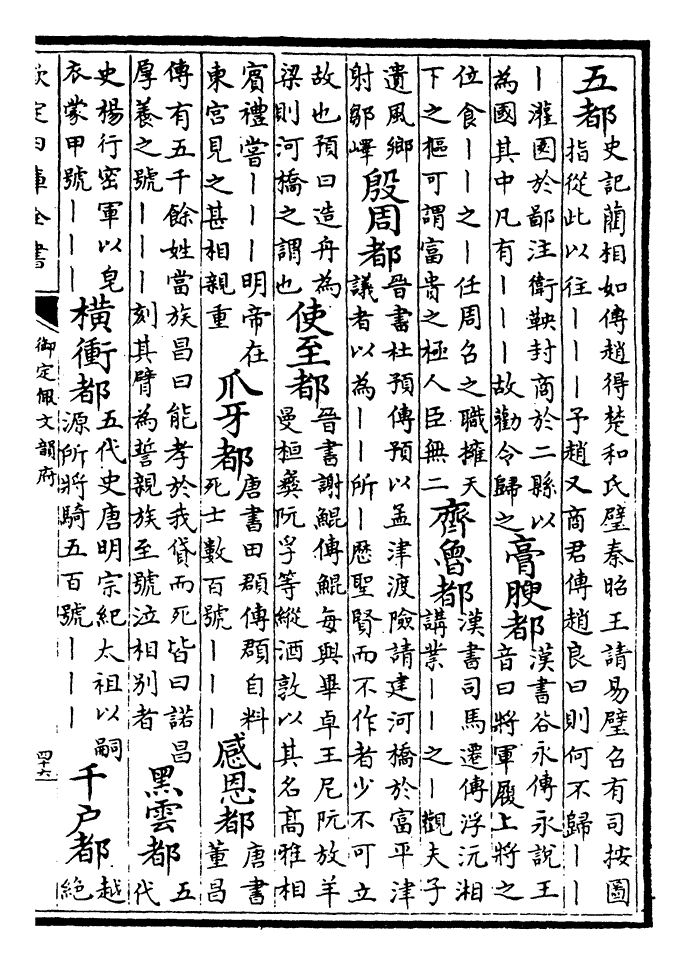 五都
史記藺相如傳趙得楚和氏璧秦昭王請易璧召有司按圖
指從此以往｜｜子趙又商君傳趙良曰則何不歸｜｜
｜灌園於鄙注衛鞅封商於二縣以
為國其中凡有｜｜｜故勸令歸之
膏腴都
漢書谷永傳永說王
音曰將軍履上將之
位食｜｜之｜任周召之職擁天
下之樞可謂富貴之極人臣無二
齊魯都
漢書司馬遷傳浮沅湘
講業｜｜之｜觀夫子
遺風鄉
射鄒嶧
殷周都
晉書杜預傳預以孟津渡險請建河橋於富平津
議者以為｜｜所｜歷聖賢而不作者少不可立
故也預曰造舟為
梁則河橋之謂也
使至都
晉書謝鯤傳鯤每與畢卓王尼阮放羊
曼桓彝阮孚等縱酒敦以其名高雅相
賓禮嘗｜｜｜明帝在
東宮見之甚相親重
爪牙都
唐書田頵傳頵自料
死士數百號｜｜｜
感恩都
唐書
董昌
傳有五千餘姓當族昌曰能孝於我貸而死皆曰諾昌
厚養之號｜｜｜刻其臂為誓親族至號泣相別者
黑雲都
五
代
史楊行密軍以皂
衣蒙甲號｜｜｜
橫衝都
五代史唐明宗紀太祖以嗣
源所將騎五百號｜｜｜
千戶都
越
絕
欽定四庫全書
御定佩文韻府
四十六